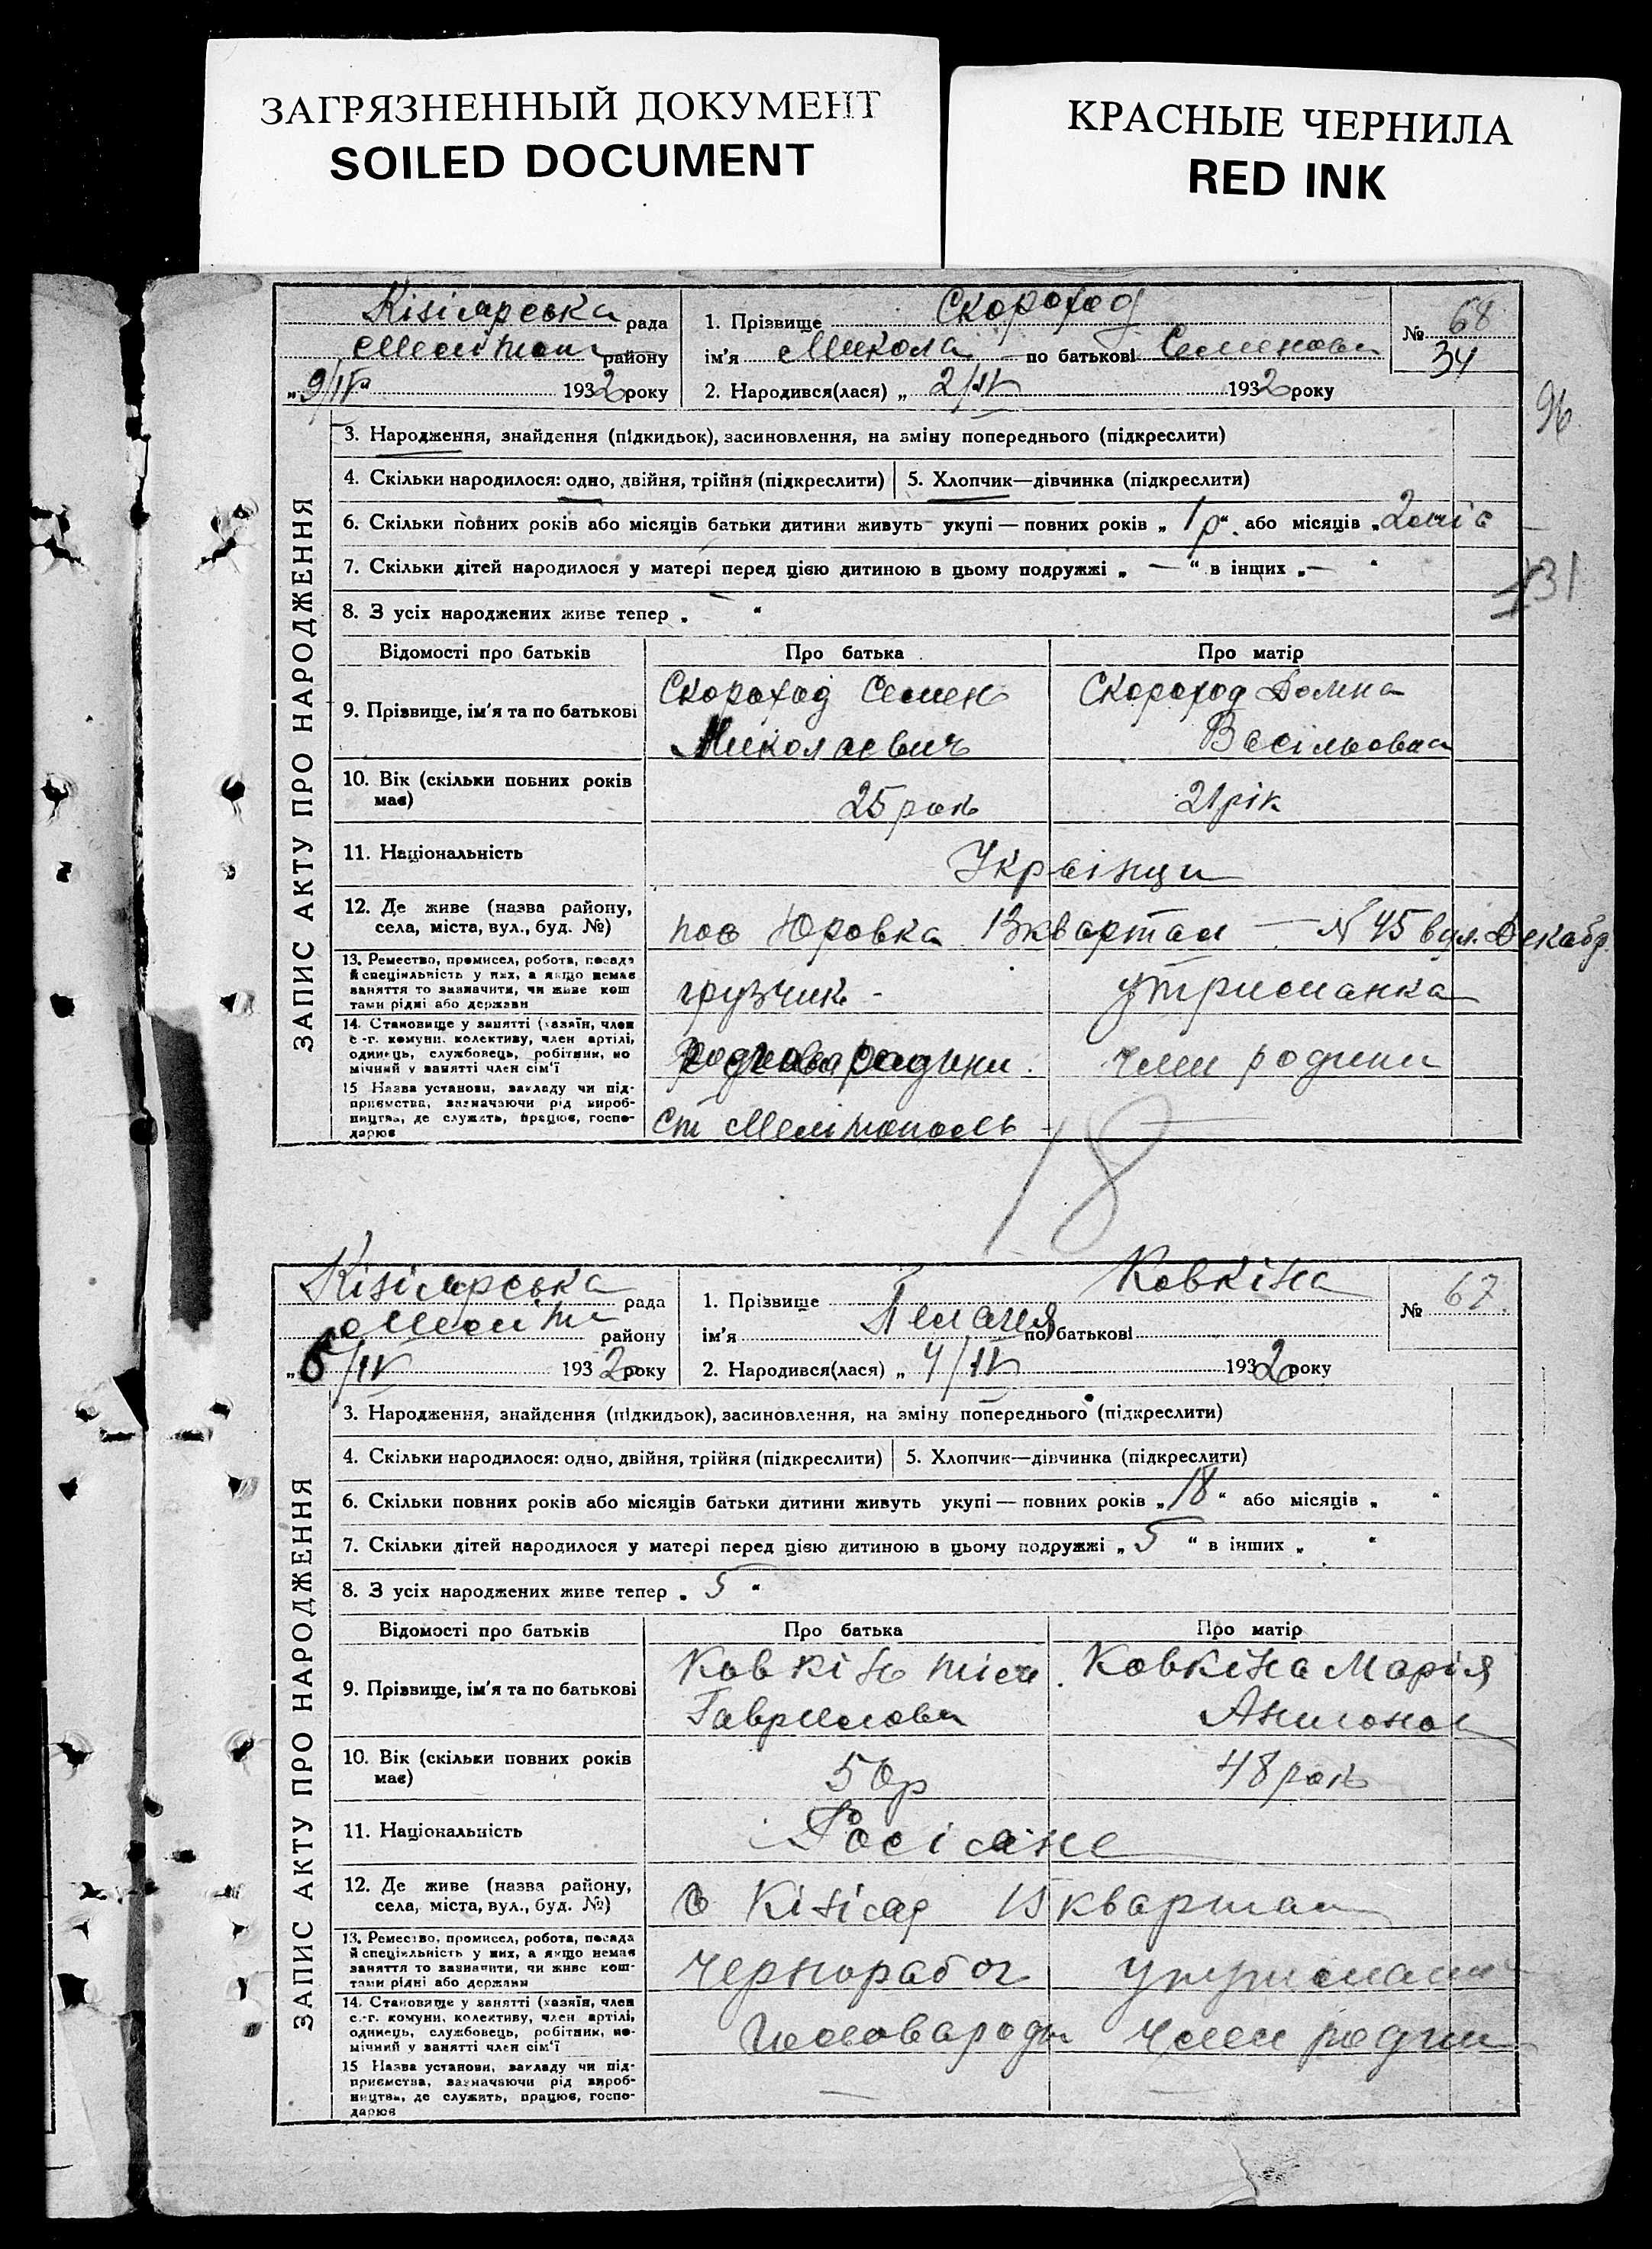 ЗАГРЯЗНЕННЫЙ ДОКУМЕНТ
SOILED DOCUMENT
КРАСНЫЕ ЧЕРНИЛА
RED INK
Кізіярська рада
Меліт району
„9/IV 1932 року
1. Прізвище Скороход
ім'я Микола по батькові Семенови
2. Народився(лася) „ 2/IV 1932 року
№ 68
34
96
ЗАПИС АКТУ ПРО НАРОДЖЕННЯ
3. Народження, знайдення (підкидьок), засиновлення, на зміну попереднього (підкреслити)
4. Скільки народилося: одно, двійня, трійня (підкреслити)
5. Хлопчик—дівчинка (підкреслити)
6. Скільки повних років або місяців батьки дитини живуть укупі — повних років „ 1 р“. або місяців „ 2 міс
7. Скільки дітей народилося у матері перед цією дитиною в цьому подружжі „ — “ в інших „ — “
131
8. З усіх народжених живе тепер „ “
Відомості про батьків
Про батька
Про матір
9. Прізвище, ім'я та по батькові
Скороход Семен
Миколаєвич
Скороход Домна
Васільовна
10. Вік (скільки повних років
має)
25 рок
21 рік
11. Національність
Українци
12. Де живе (назва району,
села, міста, вул., буд. №)
пос Юровка 13 квартал — № 45 вул. Декабр.
13. Ремество, промисел, робота, посада
й спеціяльність у них, а якщо немає
заняття то зазначити, чи живе кош
тами рідні або держави
грузчик -
утриманка
14. Становище у занятті (хазяїн, член
с.-г. комуни, колективу, член артілі,
одинець, службовець, робітник, по
мічний у занятті член сім'ї
родини.
член родини
15 Назва установи, закладу чи під-
приємства, зазначаючи рід вироб-
ництва, де служить, працює, госпо-
дарює
Ст Мелітополь
18
Кізіярська рада
Меліт району
„6/IV 1932 року
1. Прізвище Ковкіна
ім'я по батькові
2. Народився(лася) „ 4/IV 1932 року
№ 67
ЗАПИС АКТУ ПРО НАРОДЖЕННЯ
3. Народження, знайдення (підкидьок), засиновлення, на зміну попереднього (підкреслити)
4. Скільки народилося: одно, двійня, трійня (підкреслити)
5. Хлопчик—дівчинка (підкреслити)
6. Скільки повних років або місяців батьки дитини живуть укупі — повних років „ 18 “ або місяців „ “
7. Скільки дітей народилося у матері перед цією дитиною в цьому подружжі „ 5 “ в інших „ “
8. З усіх народжених живе тепер „ 5 “
Відомості про батьків
Про батька
Про матір
9. Прізвище, ім'я та по батькові
Ковкін
Гаврилови
Ковкіна Марія
10. Вік (скільки повних років
має)
50 р
48 рок
11. Національність
Росіяне
12. Де живе (назва району,
села, міста, вул., буд. №)
с Кізіяр 15 квартал
13. Ремество, промисел, робота, посада
й спеціяльність у них, а якщо немає
заняття то зазначити, чи живе кош-
тами рідні або держави
Чернорабоч
утриман
14. Становище у занятті (хазяїн, член
с.-г. комуни, колективу, член артілі,
одинець, службовець, робітник, по-
мічний у занятті член сім'ї
Голова роди
член родин
15 Назва установи, закладу чи під-
приємства, зазначаючи рід вироб-
ництва, де служить, працює, госпо-
дарює